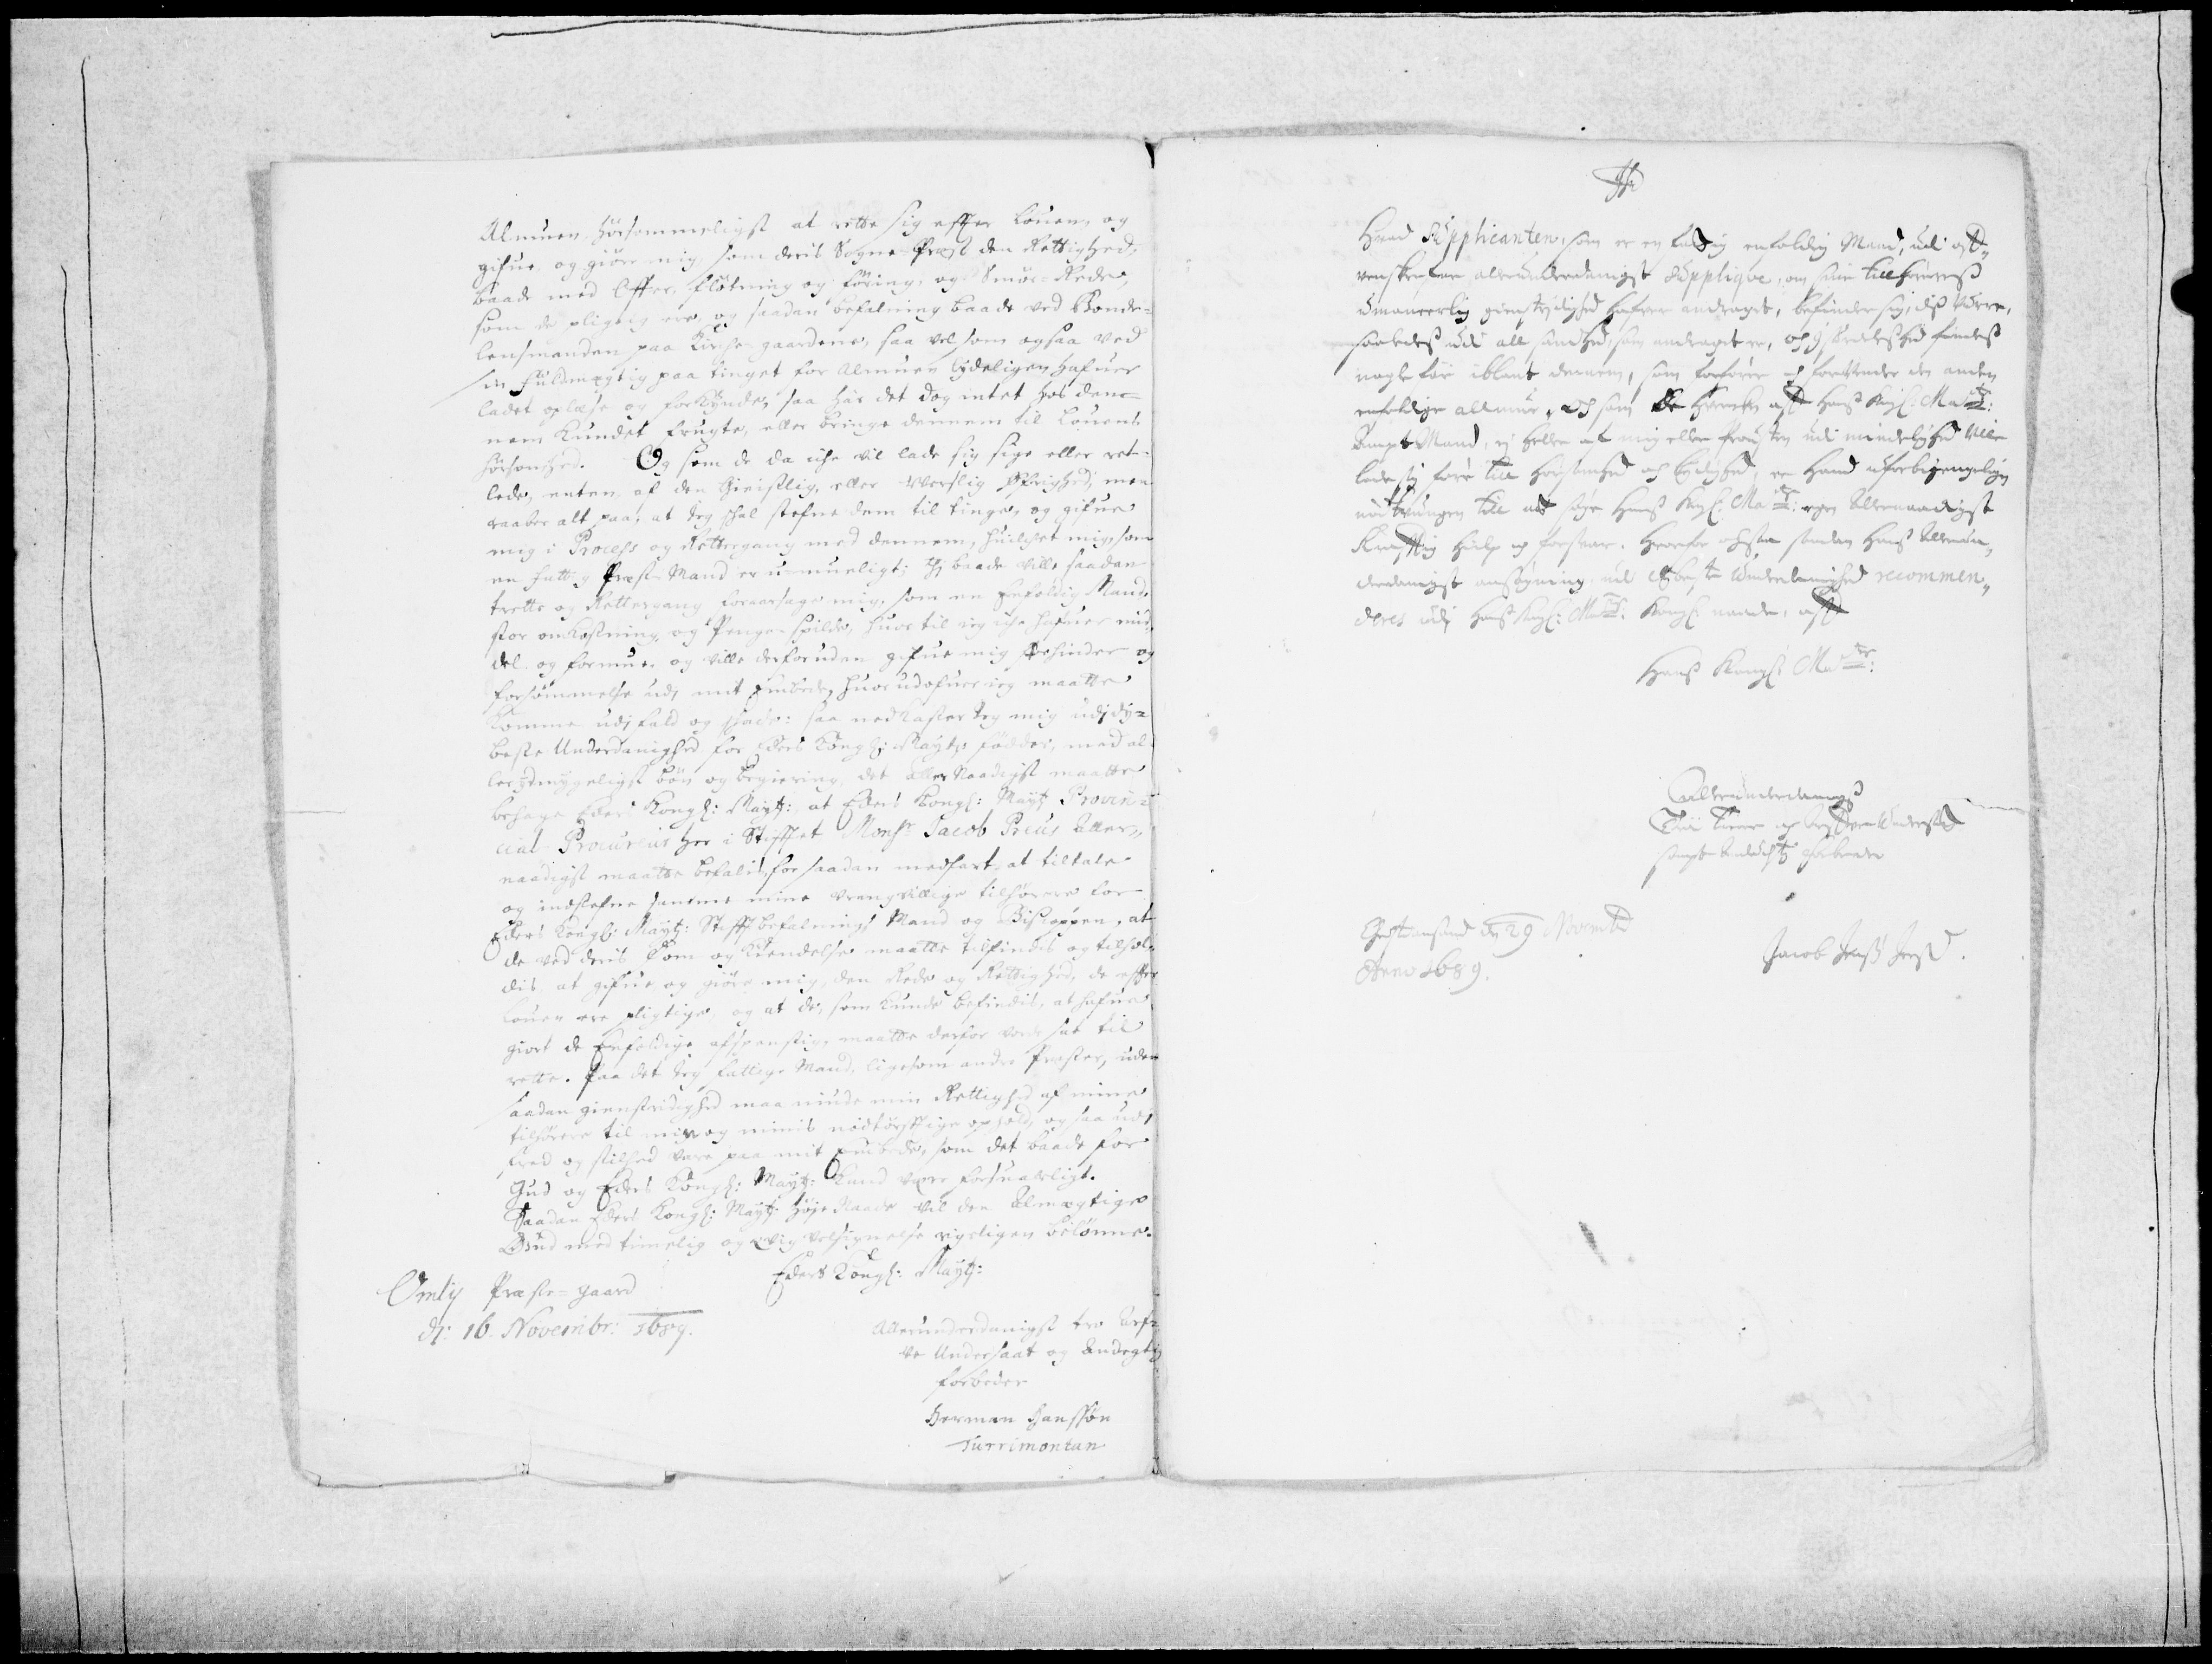 Almuen hörsommeligst at rette sig effter Louen, og
gifue, og giöre mig, som deris Sogne-Præst den Rettighed,
baade med Offer, flötning og föring, og Smör-Rede,
som de pligtig ere, og saadan befalning baade ved Bonde-
lensmanden paa Kirche-gaardene, saa vel som ogsaa ved
sin fuldmegtig paa tinget for Almuen lydeligen hafuer
ladet oplæse og forkynde, saa har det dog intet hos den-
nem kundet frugte, eller bringe dennem til Louens
hörsomhed. Og som de da iche vil lade sig sige eller vet-
lede, enten af den Gieistlig, eller Verslig Öfrighed, men
raaber alt paa, at jeg schal stefne dem til tinge, og gifue
mig i Process og Rettergang med dennem, huilchet mig, som
en fattig Præste-Mand er u-mueligt; thj baade ville saadan
trette og Rettergang foraarsage mig, som en Enfoldig Mand,
stor omkostning, og Penge-spilde, huor til jeg iche hafuer mid-
del og formue, og ville desforuden gifue mig forhinder og
forsömmelse udj mit Embede, huor udofuer jeg maatte
komme udj fald og schade: saa nedkaster Jeg mig udj dy-
beste Underdanighed for Eders Kongl: Mayts födder, med al-
ler ydmygeligst bön og begiering, det aller Naadigst maatte
behage Eders Kongl: Mayts: at Eders Kongl: Mayts Provin-
cial Procureur her i Stifftet Monsr Jacob Preus Aller-
naadigst maatte befalis, for saadan medfart, at tiltale
og indstefne samme mine vrangvillige tilhörere for
Eders Kongl: Mayts: Stifftbefalnings Mand og Biscoppen, at
de ved deris Dom og Kiendelse maatte tilfindis og tilhol-
dis, at gifue og giöre mig, den Rede og Rettighed, de effter
Louen ere pligtige, og at de, som kunde befindis, at hafue
giort de Enfoldige afspenstig, maatte derfor vorde sat til
rette. Paa det Jeg fattige Mand, ligesom andre Præster, uden
saadan gienstridighed maa niude min Rettighed af mine
tilhörere til min og minis nödtörfftige ophold, og saa udj
fred og stilhed vare paa mit Embede, som det baade for
Gud og Eders Kongl: Mayts: kand være forsuarligt.
Saadan Eders Kongl: Mayts Höje Naade vil den Almegtige
Gud med timelig og evig Velsignelse rigeligen belönne.
Eders Kongl: Mayts:
Omlj Præste-gaard
dj: 16. Novembr: 1689.
Allerunderdanigst tro Arf-
ve Undersaat og Andegtig
forbeder
Herman Hanssön
Turrimontan
Hvad Supplicanten, som er en fattig enfoldig Mand, udi oft-
allerunderdanigst Supplique, om sine tilhöreres
umaneerlig gienstridighed hafver andraget, befinder sig, dis Verre,
saaledes udi all sandhed, som andraget er, och
nogle faa iblant dennem, som forförer och den anden
enfoldige allmue, och som de hverken aff Hans Kongl: Maits:
AmptMand, ej heller af mig eller udi mindelighed ville
lade sig före till hörsomhed och lydighed, er Hand uforbigengelig
nödtvungen till at söge Hans Kongl: Maits: egen Allernaadigste
Krafftig hielp og forsvar. Hvorfor ochsaa saadan Hans Allerun-
derdanigste ansögning udi dybeste underdanighed recommen-
deres udi Hans Kongl: Maits: Kongl: naade, aff
Hans Kongl: Maits:
Allerunderdanigst
Troe tiener og Arfve Undersaat
sampt forbeder
Christiansand d 29 Novembr
Anno 1689.
Jacob Jenssön Jersin.